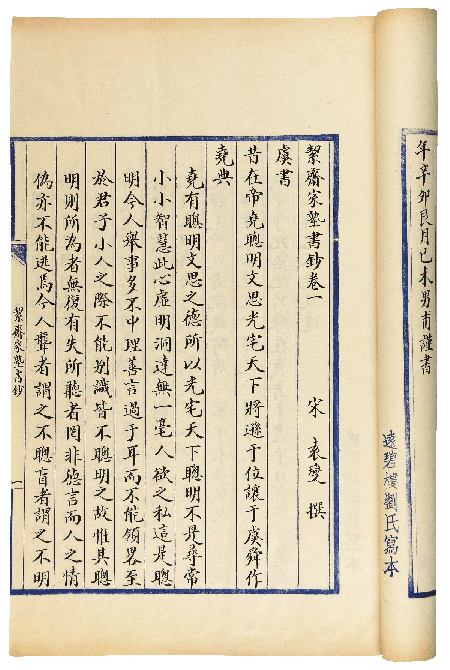 年辛卯良月己未男甫謹書
遠碧樓劉氏寫本
絜齋家塾書鈔卷一
宋 袁燮 撰
虞書
昔在帝堯聰明文思光宅天下將遜于位讓于虞舜作
堯典
堯有聰明文思之德所以光宅天下聰明不是尋常
小小智慧此心虛明洞達無一毫人欲之私這是聰
明今人舉事多不中理善言過于耳而不能領畧至
於君子小人之際不能別識皆不聰明之故惟其聰
明則所為者無復有失所聽者罔非德言而人之情
偽亦不能逃焉今人聾者謂之不聰盲者謂之不明
絜齋家塾書鈔
一